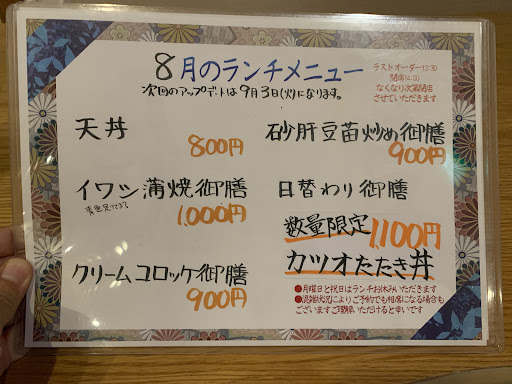 8月のランチメニュー
次回のアップデートは9月3日(火)になります。
ラストオーダー13:30
閉店14:00
なくなり次第閉店
させていただきます
天丼
800円
砂肝豆苗炒め御膳
900円
イワシ蒲焼御膳
1,000円
日替わり御膳
数量限定 1,100円
カツオたたき丼
クリームコロッケ御膳
900円
●月曜日と祝日はランチお休みいただきます
●混雑状況によりご予約でも相席になる場合も
ございますご理解いただけると幸いです